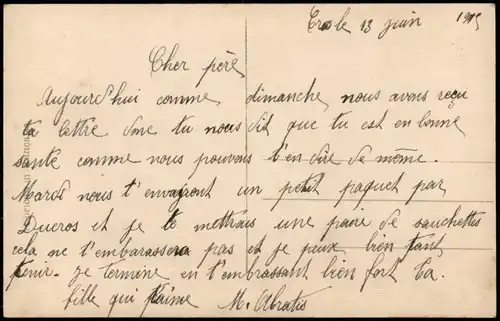 le 13 juin 1915
Cher père
Aujourd'hui comme dimanche nous avons reçu
ta lettre donc tu nous dit que tu est en bonne
santé comme nous pouvons t'en dire de même.
Mardi nous t'envayront un petit paquet par
Ducros et je te mettrais une paire de sauchettes
cela ne t'embarassera pas et je peux bien tant
tenir. Je termine en t'embrassant bien fort Ta
fille qui t'aime M.